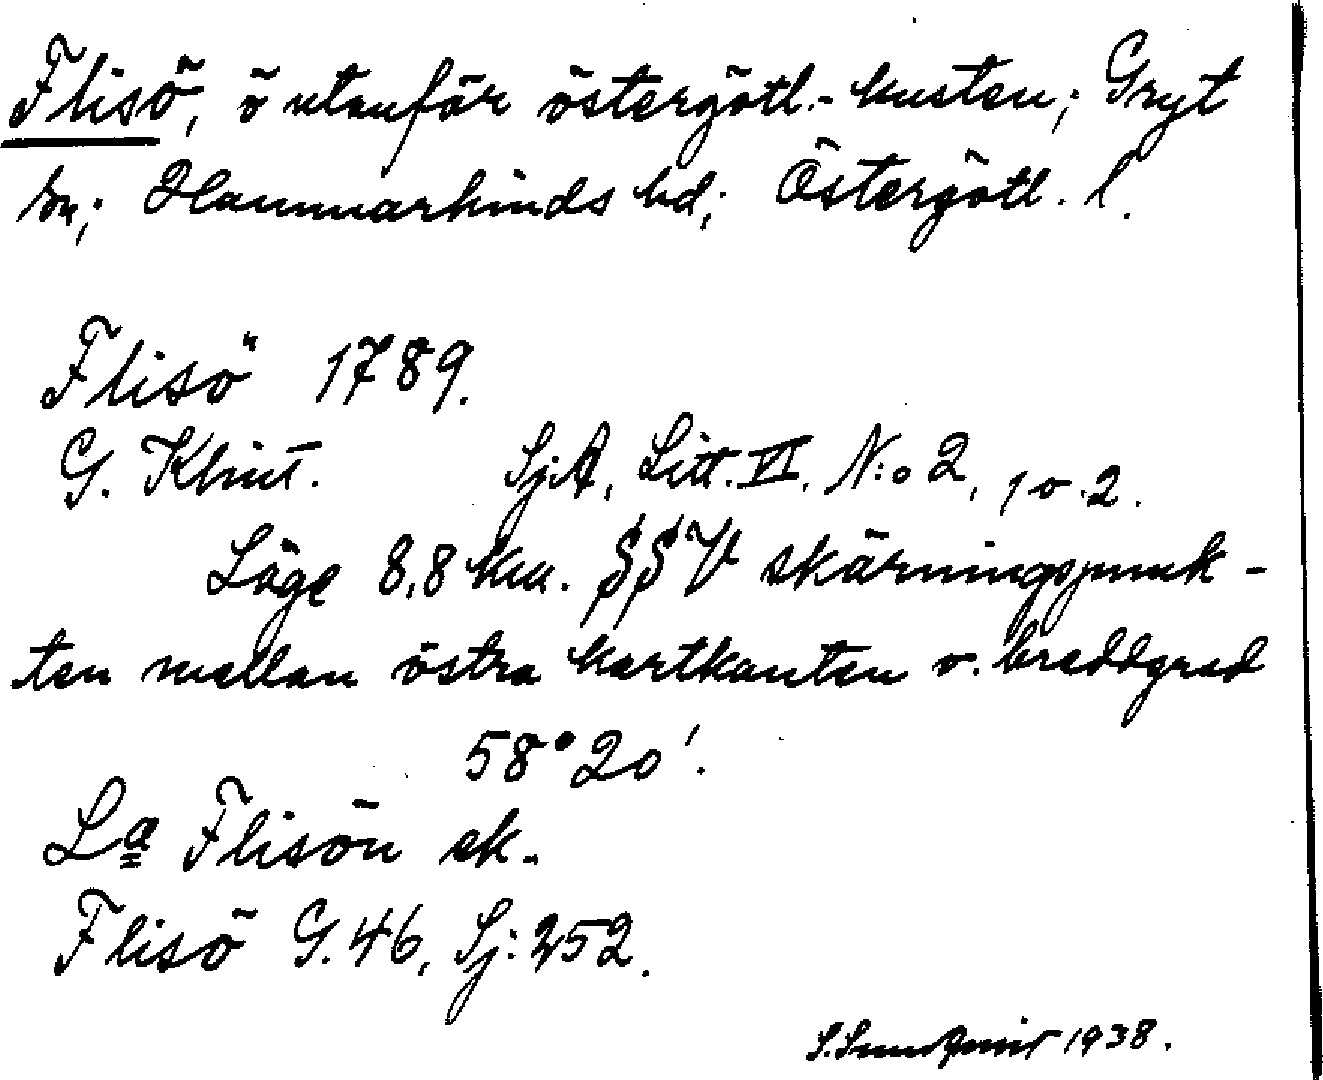 Flisö, ö utanför östergötl.-kusten; Gryt
sn; Hammarkinds hd; Östergötl. l.
Flisö 1789.
G. Klint. Sj.A, Litt. VI. N:o 2, 1 o. 2.
Läge 8,8 km. SSV skärningspunk-
ten mellan östra kartkanten o. breddgrad
58° 20'.
La Flisön ek.
Flisö G. 46, Sj: 252.
1938.